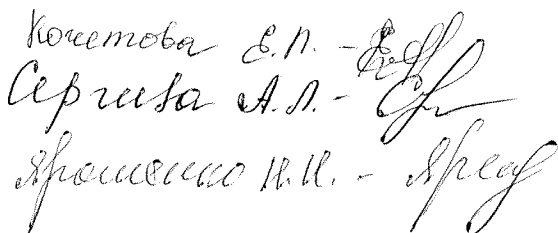 Кочетова Е.П. -
Сергиева А.Л. -
Ярошенко Н.И. -